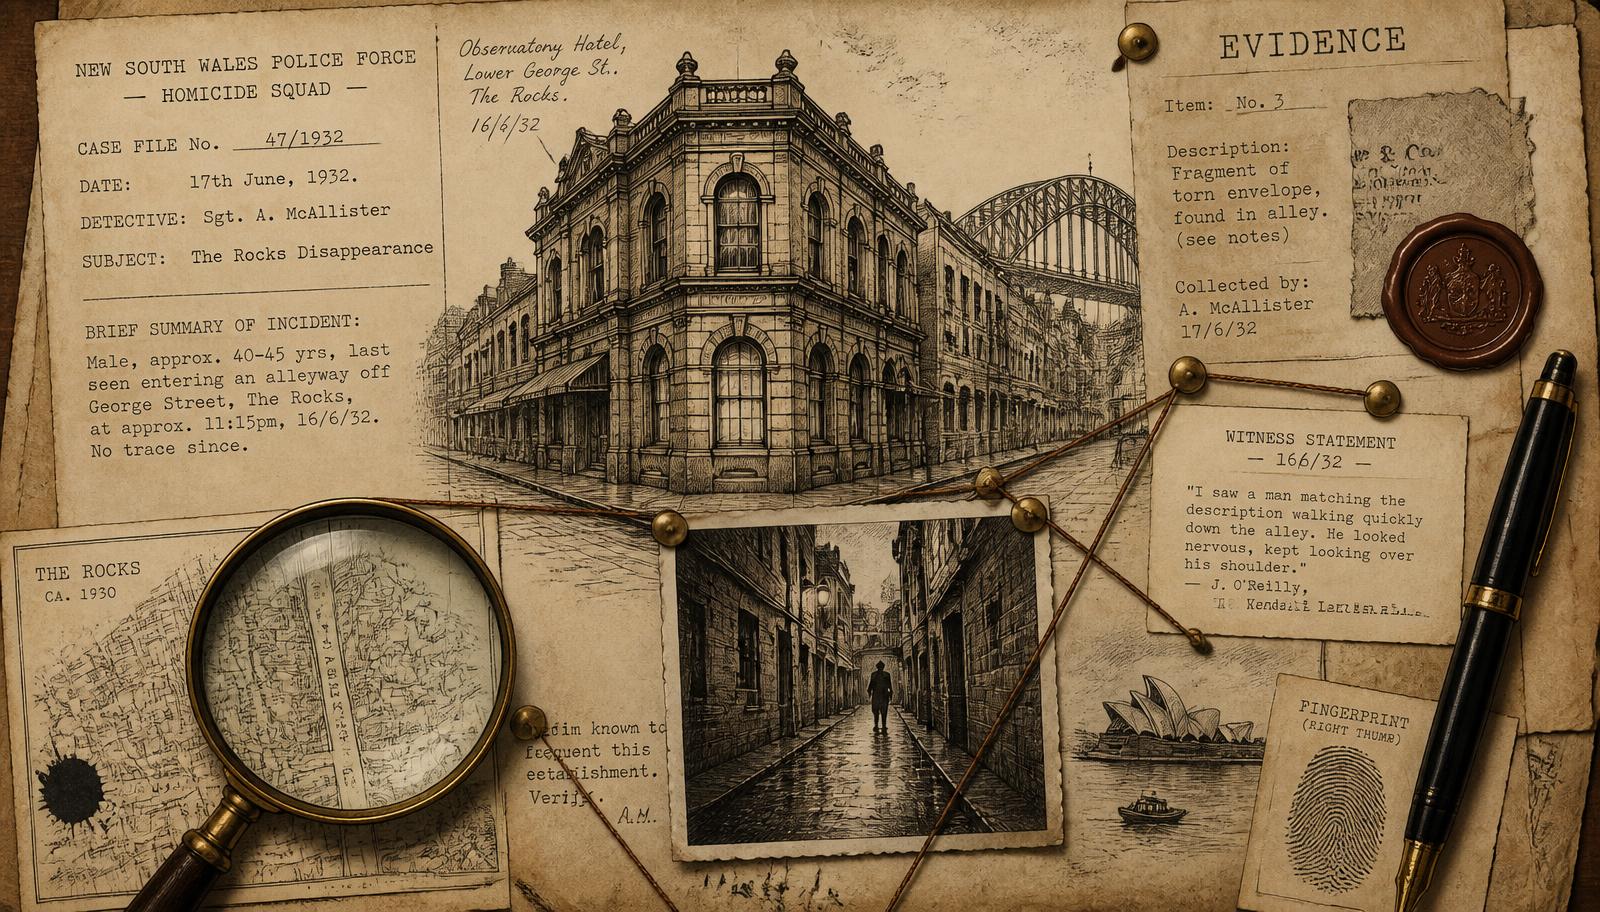 NEW SOUTH WALES POLICE FORCE
— HOMICIDE SQUAD —
CASE FILE No. 47/1932
DATE: 17th June, 1932.
DETECTIVE: Sgt. A. McAllister
SUBJECT: The Rocks Disappearance
BRIEF SUMMARY OF INCIDENT:
Male, approx. 40-45 yrs, last
seen entering an alleyway off
George Street, The Rocks,
at approx. 11:15pm, 16/6/32.
No trace since.
Observatony Hatel,
Lower George St..
The Rocks.
16/6/32
EVIDENCE
Item: No. 3
Description:
Fragment of
torn envelope,
found in alley.
(see notes)
Collected by:
A. McAllister
17/6/32
WITNESS STATEMENT
— 166/32 —
"I saw a man matching the
description walking quickly
down the alley. He looked
nervous, kept looking over
his shoulder."
— J. O'Reilly,
THE ROCKS
CA. 1930
known to
this
A.M.
FINGERPRINT
(RIGHT THUMB)